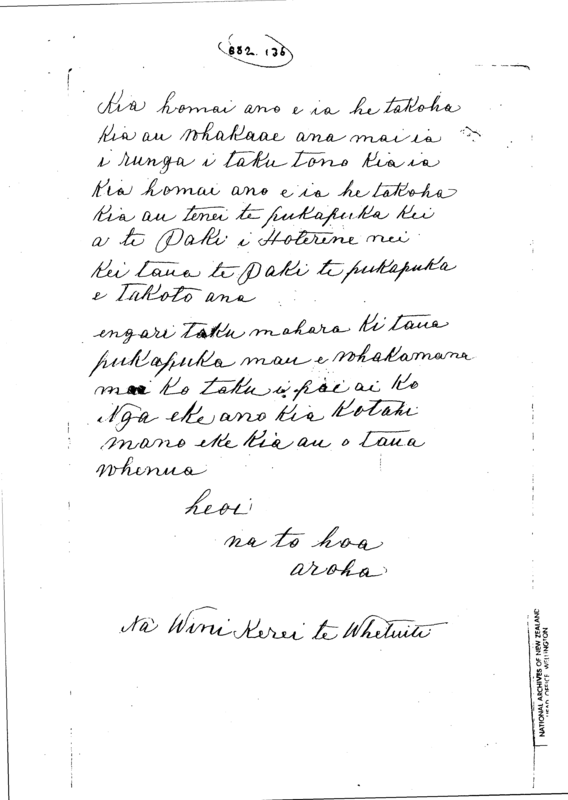 882. 136
Kia homai ano e ia he takoha
Kia au whakaae ana mai ia
i runga i taku tono Kia ia
Kia homai ano e ia he takoha
Kia au tenei te pukapuka Kei
a te Paki i Hoterene nei
Kei taua te Paki te pukapuka
e takoto ana
engari taku mahara Ki taua
pukapuka mau e whakamana
mai Ko taku i pai ai Ko
Nga eke ano Kia Kotahi
mano eke Kia au o taua
whenua
heoi
na to hoa
aroha
Na Wini Kerei te Whetuiti
NATIONAL ARCHIVES OF NEW ZEALAND
HEAD OFFICE WELLINGTON